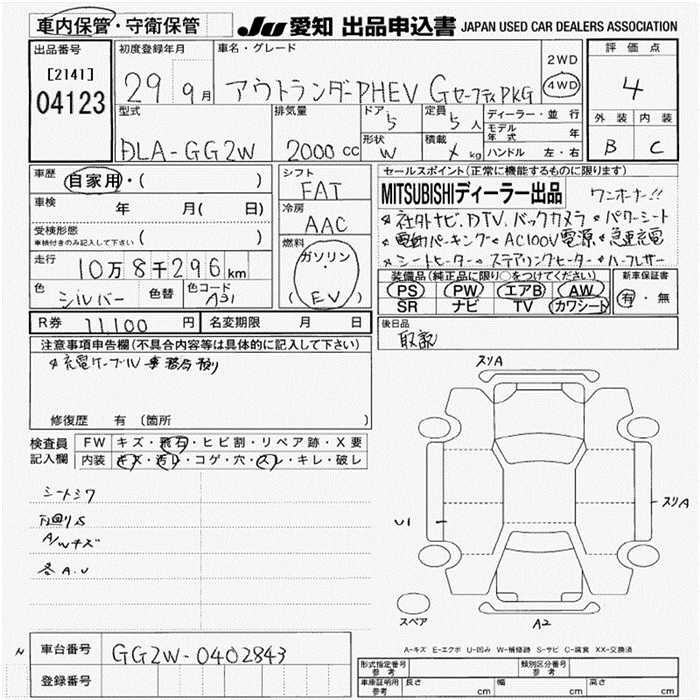 車内保管・守衛保管
JU 愛知 出品申込書 JAPAN USED CAR DEALERS ASSOCIATION
出品番号
[2141]
04123
初度登録年月
29 9月
車名・グレード
アウトランダーPHEV GセーフティPKG
2WD
4WD
評価点
4
外装 内装
B C
型式
DLA-GG2W
排気量
2000cc
ドア 5
形状 W
定員 5人
積載 kg
ディーラー・並行
モデル年式 年
ハンドル 左・右
車歴
自家用・( )
車検 年 月( 日)
受検形態
車検付きのみ記入して下さい ( )
走行
10万8千296km
色 シルバー
色替
色コード A31
シフト
FAT
冷房
AAC
燃料
ガソリン・
(EV)
セールスポイント(正常に機能するものに限ります)
MITSUBISHIディーラー出品 ワンオーナー!!
社外ナビ、DTV、バックカメラ パワーシート
電動パーキング AC100V電源 急速充電
シートヒーター ステアリングヒーター ハーフレザー
装備品(純正品に限り○をつけてください)
PS PW エアB AW
SR ナビ TV カワシート
新車保証書
有・無
R券 11,100円
名変期限 月 日
後日品
取説
注意事項申告欄(不具合内容等は具体的に記入して下さい)
充電ケーブル事務局預り
修復歴 有 (箇所
検査員記入欄
FW キズ・飛石・ヒビ割・リペア跡・X要
内装 キズ・汚レ・コゲ・穴・スレ・キレ・破レ
シートシワ
A/Wキズ
各A.U
スリA
スリA
U1
A2
スペア
A-キズ E-エクボ U-凹み W-補修跡 S-サビ C-腐食 XX-交換済
N
車台番号 GG2W-0402843
登録番号
形式指定番号 参考
類別区分番号 参考
車庫証明用 参考 長さ cm 幅 cm 高さ cm